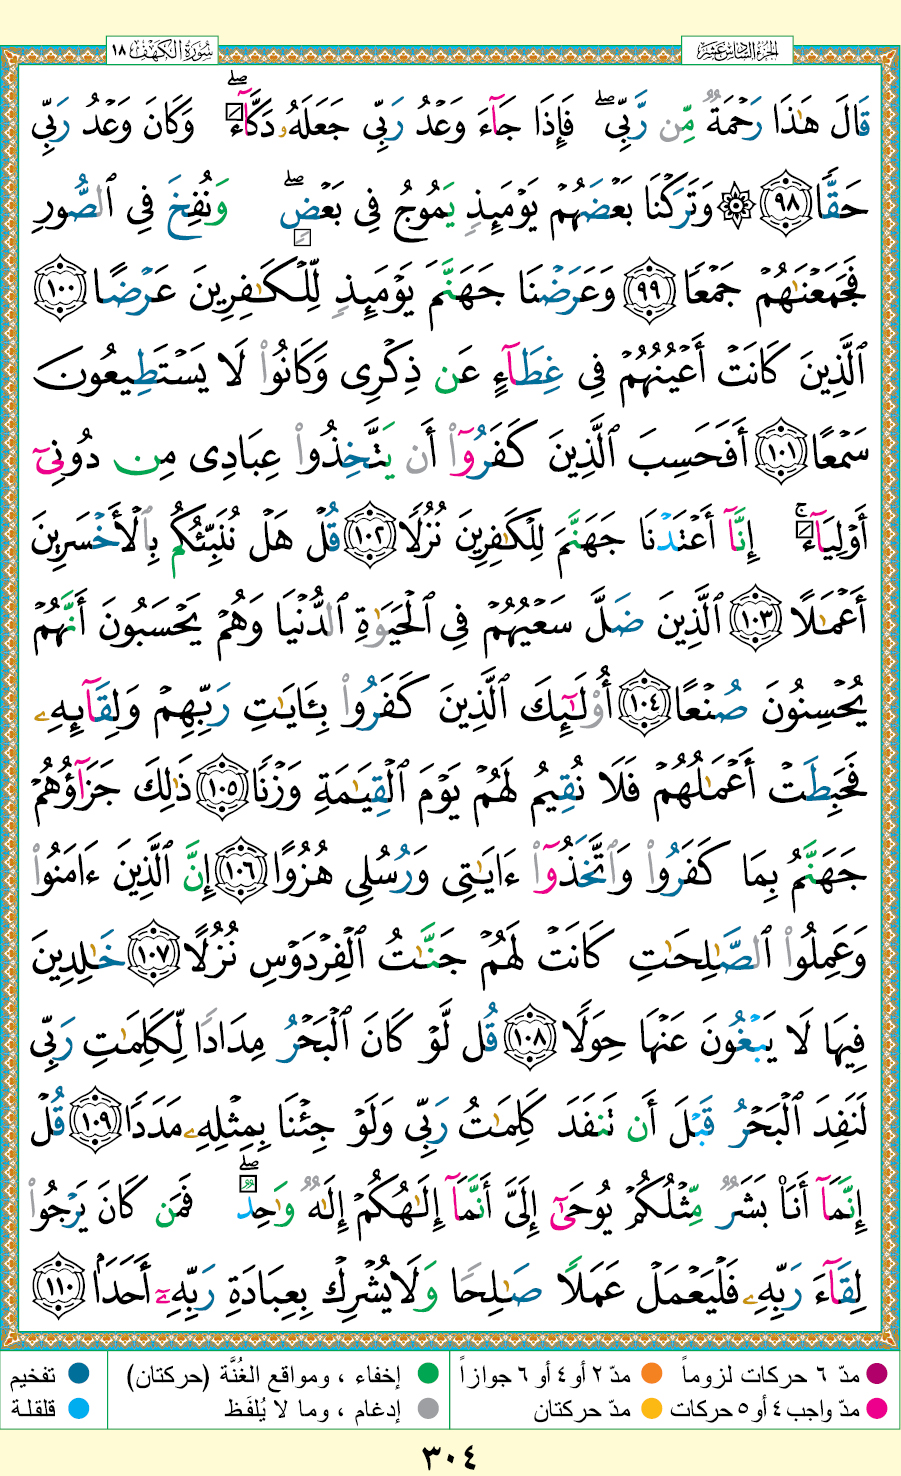 سُورَةُ الكَهْف ١٨
الجزء السادس عشر
قَالَ هَٰذَا رَحْمَةٌ مِّن رَّبِّى ۖ فَإِذَا جَآءَ وَعْدُ رَبِّى جَعَلَهُۥ دَكَّآءَ ۖ وَكَانَ وَعْدُ رَبِّى
حَقًّا ﴿٩٨﴾ ۞ وَتَرَكْنَا بَعْضَهُمْ يَوْمَئِذٍ يَمُوجُ فِى بَعْضٍ ۖ وَنُفِخَ فِى ٱلصُّورِ
فَجَمَعْنَٰهُمْ جَمْعًا ﴿٩٩﴾ وَعَرَضْنَا جَهَنَّمَ يَوْمَئِذٍ لِّلْكَٰفِرِينَ عَرْضًا ﴿١٠٠﴾
ٱلَّذِينَ كَانَتْ أَعْيُنُهُمْ فِى غِطَآءٍ عَن ذِكْرِى وَكَانُوا۟ لَا يَسْتَطِيعُونَ
سَمْعًا ﴿١٠١﴾ أَفَحَسِبَ ٱلَّذِينَ كَفَرُوٓا۟ أَن يَتَّخِذُوا۟ عِبَادِى مِن دُونِىٓ
أَوْلِيَآءَ ۚ إِنَّآ أَعْتَدْنَا جَهَنَّمَ لِلْكَٰفِرِينَ نُزُلًا ﴿١٠٢﴾ قُلْ هَلْ نُنَبِّئُكُم بِٱلْأَخْسَرِينَ
أَعْمَٰلًا ﴿١٠٣﴾ ٱلَّذِينَ ضَلَّ سَعْيُهُمْ فِى ٱلْحَيَوٰةِ ٱلدُّنْيَا وَهُمْ يَحْسَبُونَ أَنَّهُمْ
يُحْسِنُونَ صُنْعًا ﴿١٠٤﴾ أُو۟لَٰٓئِكَ ٱلَّذِينَ كَفَرُوا۟ بِـَٔايَٰتِ رَبِّهِمْ وَلِقَآئِهِۦ
فَحَبِطَتْ أَعْمَٰلُهُمْ فَلَا نُقِيمُ لَهُمْ يَوْمَ ٱلْقِيَٰمَةِ وَزْنًا ﴿١٠٥﴾ ذَٰلِكَ جَزَآؤُهُمْ
جَهَنَّمُ بِمَا كَفَرُوا۟ وَٱتَّخَذُوٓا۟ ءَايَٰتِى وَرُسُلِى هُزُوًا ﴿١٠٦﴾ إِنَّ ٱلَّذِينَ ءَامَنُوا۟
وَعَمِلُوا۟ ٱلصَّٰلِحَٰتِ كَانَتْ لَهُمْ جَنَّٰتُ ٱلْفِرْدَوْسِ نُزُلًا ﴿١٠٧﴾ خَٰلِدِينَ
فِيهَا لَا يَبْغُونَ عَنْهَا حِوَلًا ﴿١٠٨﴾ قُل لَّوْ كَانَ ٱلْبَحْرُ مِدَادًا لِّكَلِمَٰتِ رَبِّى
لَنَفِدَ ٱلْبَحْرُ قَبْلَ أَن تَنفَدَ كَلِمَٰتُ رَبِّى وَلَوْ جِئْنَا بِمِثْلِهِۦ مَدَدًا ﴿١٠٩﴾ قُلْ
إِنَّمَآ أَنَا۠ بَشَرٌ مِّثْلُكُمْ يُوحَىٰٓ إِلَىَّ أَنَّمَآ إِلَٰهُكُمْ إِلَٰهٌ وَٰحِدٌ ۖ فَمَن كَانَ يَرْجُوا۟
لِقَآءَ رَبِّهِۦ فَلْيَعْمَلْ عَمَلًا صَٰلِحًا وَلَا يُشْرِكْ بِعِبَادَةِ رَبِّهِۦٓ أَحَدًۢا ﴿١١٠﴾
مدّ ٦ حركات لزوماً مدّ ٢ أو ٤ أو ٦ جوازاً إخفاء ، ومواقع الغُنَّة (حركتان) تفخيم
مدّ واجب ٤ أو ٥ حركات مدّ حركتان إدغام ، وما لا يُلفَظ قلقلة
٣٠٤